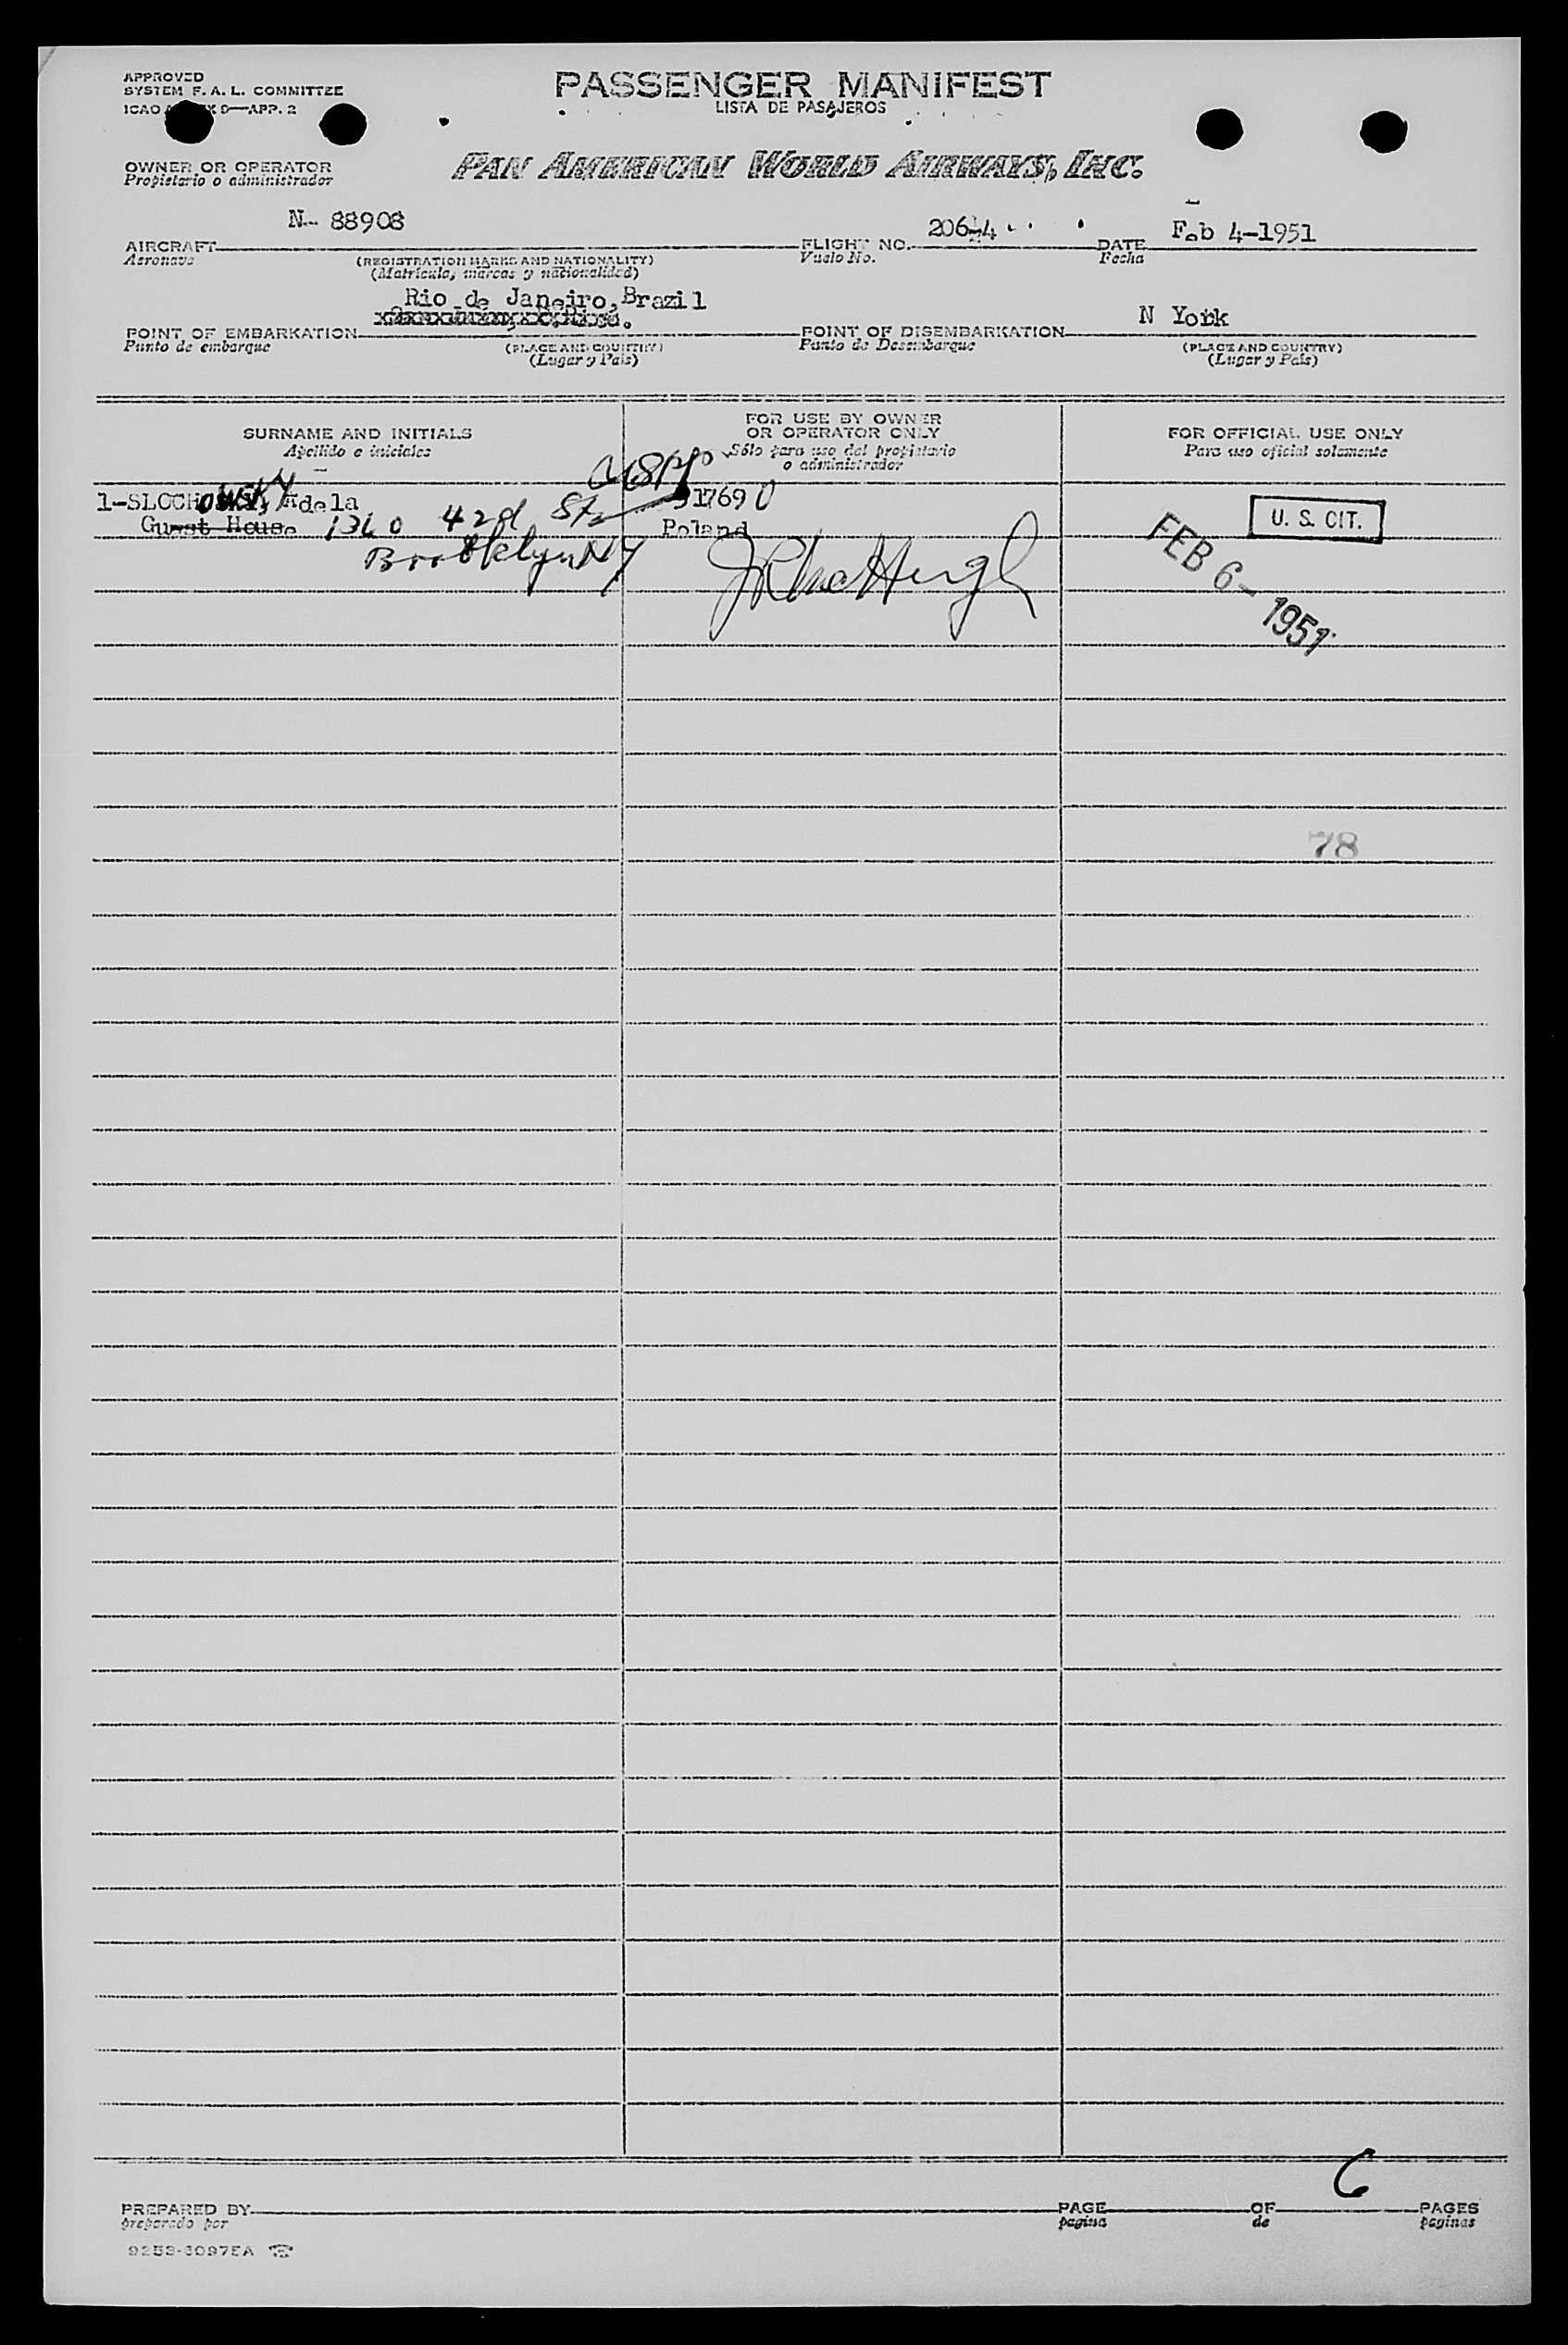 APPROVED
SYSTEM F. A. L. COMMITTEE
ICAO D—APP. 2
PASSENGER MANIFEST
LISTA DE PASAJEROS
OWNER OR OPERATOR
Propietario o administrador
PAN AMERICAN WORLD AIRWAYS, INC.
N- 88908
206-4
Feb 4-1951
AIRCRAFT FLIGHT NO. DATE
Aeronave (REGISTRATION MARKS AND NATIONALITY) Vuelo No. Fecha
(Matrícula, marcas y nacionalidad)
Rio de Janeiro, Brazil
N York
POINT OF EMBARKATION POINT OF DISEMBARKATION
Punto de embarque (PLACE AND COUNTRY) Punto de Desembarque (PLACE AND COUNTRY)
(Lugar y País) (Lugar y País)
SURNAME AND INITIALS
Apellido e iniciales
FOR USE BY OWNER
OR OPERATOR ONLY
Sólo para uso del propietario
o administrador
FOR OFFICIAL USE ONLY
Para uso oficial solamente
USPP
1-SLOCHOWSKY Adela 31769 0
Guest House 1360 42d St
Poland
Brooklyn NY
U. S. CIT.
FEB 6- 1951
78
6
PREPARED BY PAGE OF PAGES
preparado por pagina de paginas
9253-3097EA